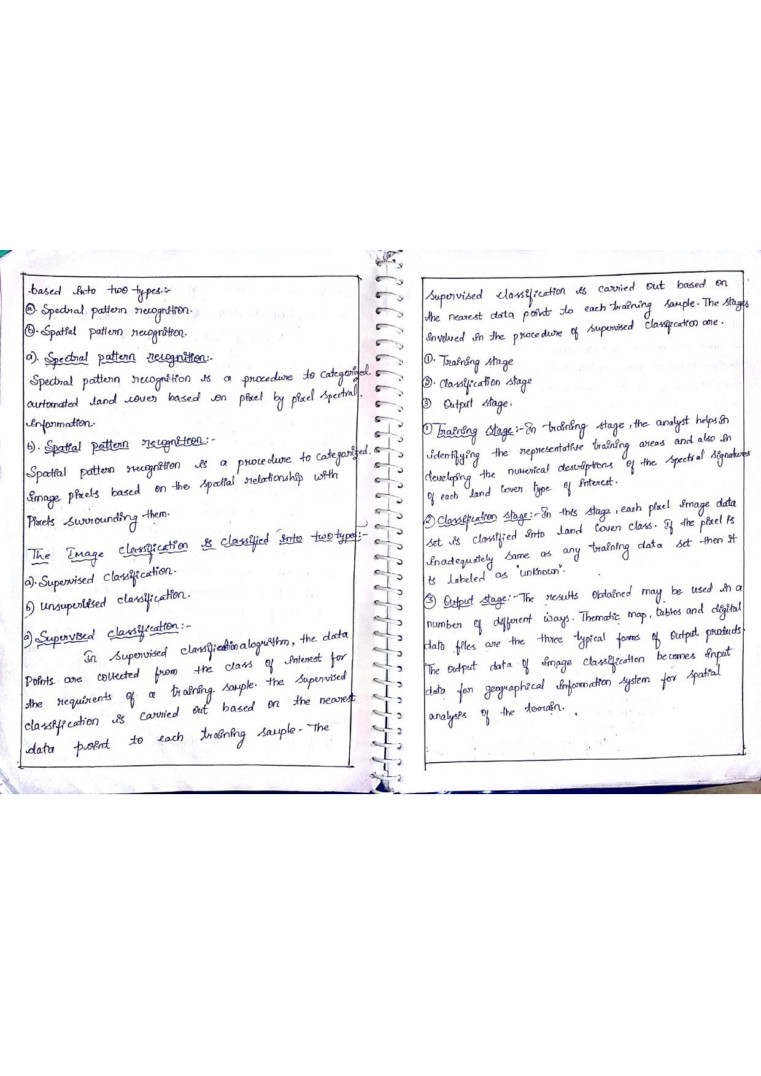 based into two types:-
ⓐ. Spectral pattern recognition.
ⓑ. Spatial pattern recognition.
a). Spectral pattern recognition:-
Spectral pattern recognition is a procedure to Categorized.
automated land cover based on pixel by pixel spectral.
information.
b). Spatial pattern recognition:-
Spatial pattern recognition is a procedure to categorized.
image pixels based on the spatial relationship with
Pixels surrounding them.
The Image classification is classified into two types:-
a). Supervised classification.
b) Unsupervised classification.
a) Supervised classification:-
In supervised classification alogrithm, the data
Points are collected from the class of interest for
the requirents of a training saple. the supervised
classification is carried out based on the nearest
data point to each training saple. The
supervised classification is carried out based on
the nearest data point to each training saple. The stages
involved in the procedure of supervised classification are.
①. Training stage
②. classification stage
③ Output stage.
① Training stage:- In training stage, the analyst helps in
identifying the representative training areas and also in
developing the numerical descriptions of the spectral signatures
of each land cover type of interest.
② Classification stage:- In this stage, each pixel image data
set is classified into land cover class. If the pixel is
inadequately same as any training data set then it
is labeled as "unknown".
③ Output stage:- The results obtained may be used in a
number of different ways. Thematic map, tables and digital
data files are the three typical forms of output products.
The output data of image classification becomes input
data for geographical information system for spatial
analysis of the terrain.